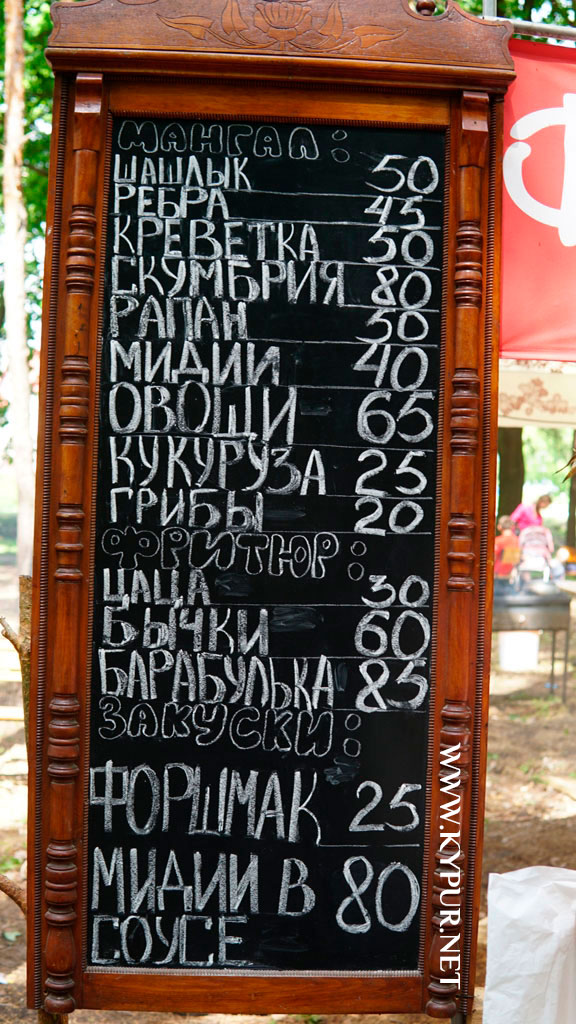 МАНГАЛ:
ШАШЛЫК 50
РЕБРА 45
КРЕВЕТКА 50
СКУМБРИЯ 80
РАПАН 50
МИДИИ 40
ОВОЩИ 65
КУКУРУЗА 25
ГРИБЫ 20
ФРИТЮР:
ЦАЦА 30
БЫЧКИ 60
БАРАБУЛЬКА 85
ЗАКУСКИ:
ФОРШМАК 25
МИДИИ В 80
СОУСЕ
WWW.KYPUR.NET